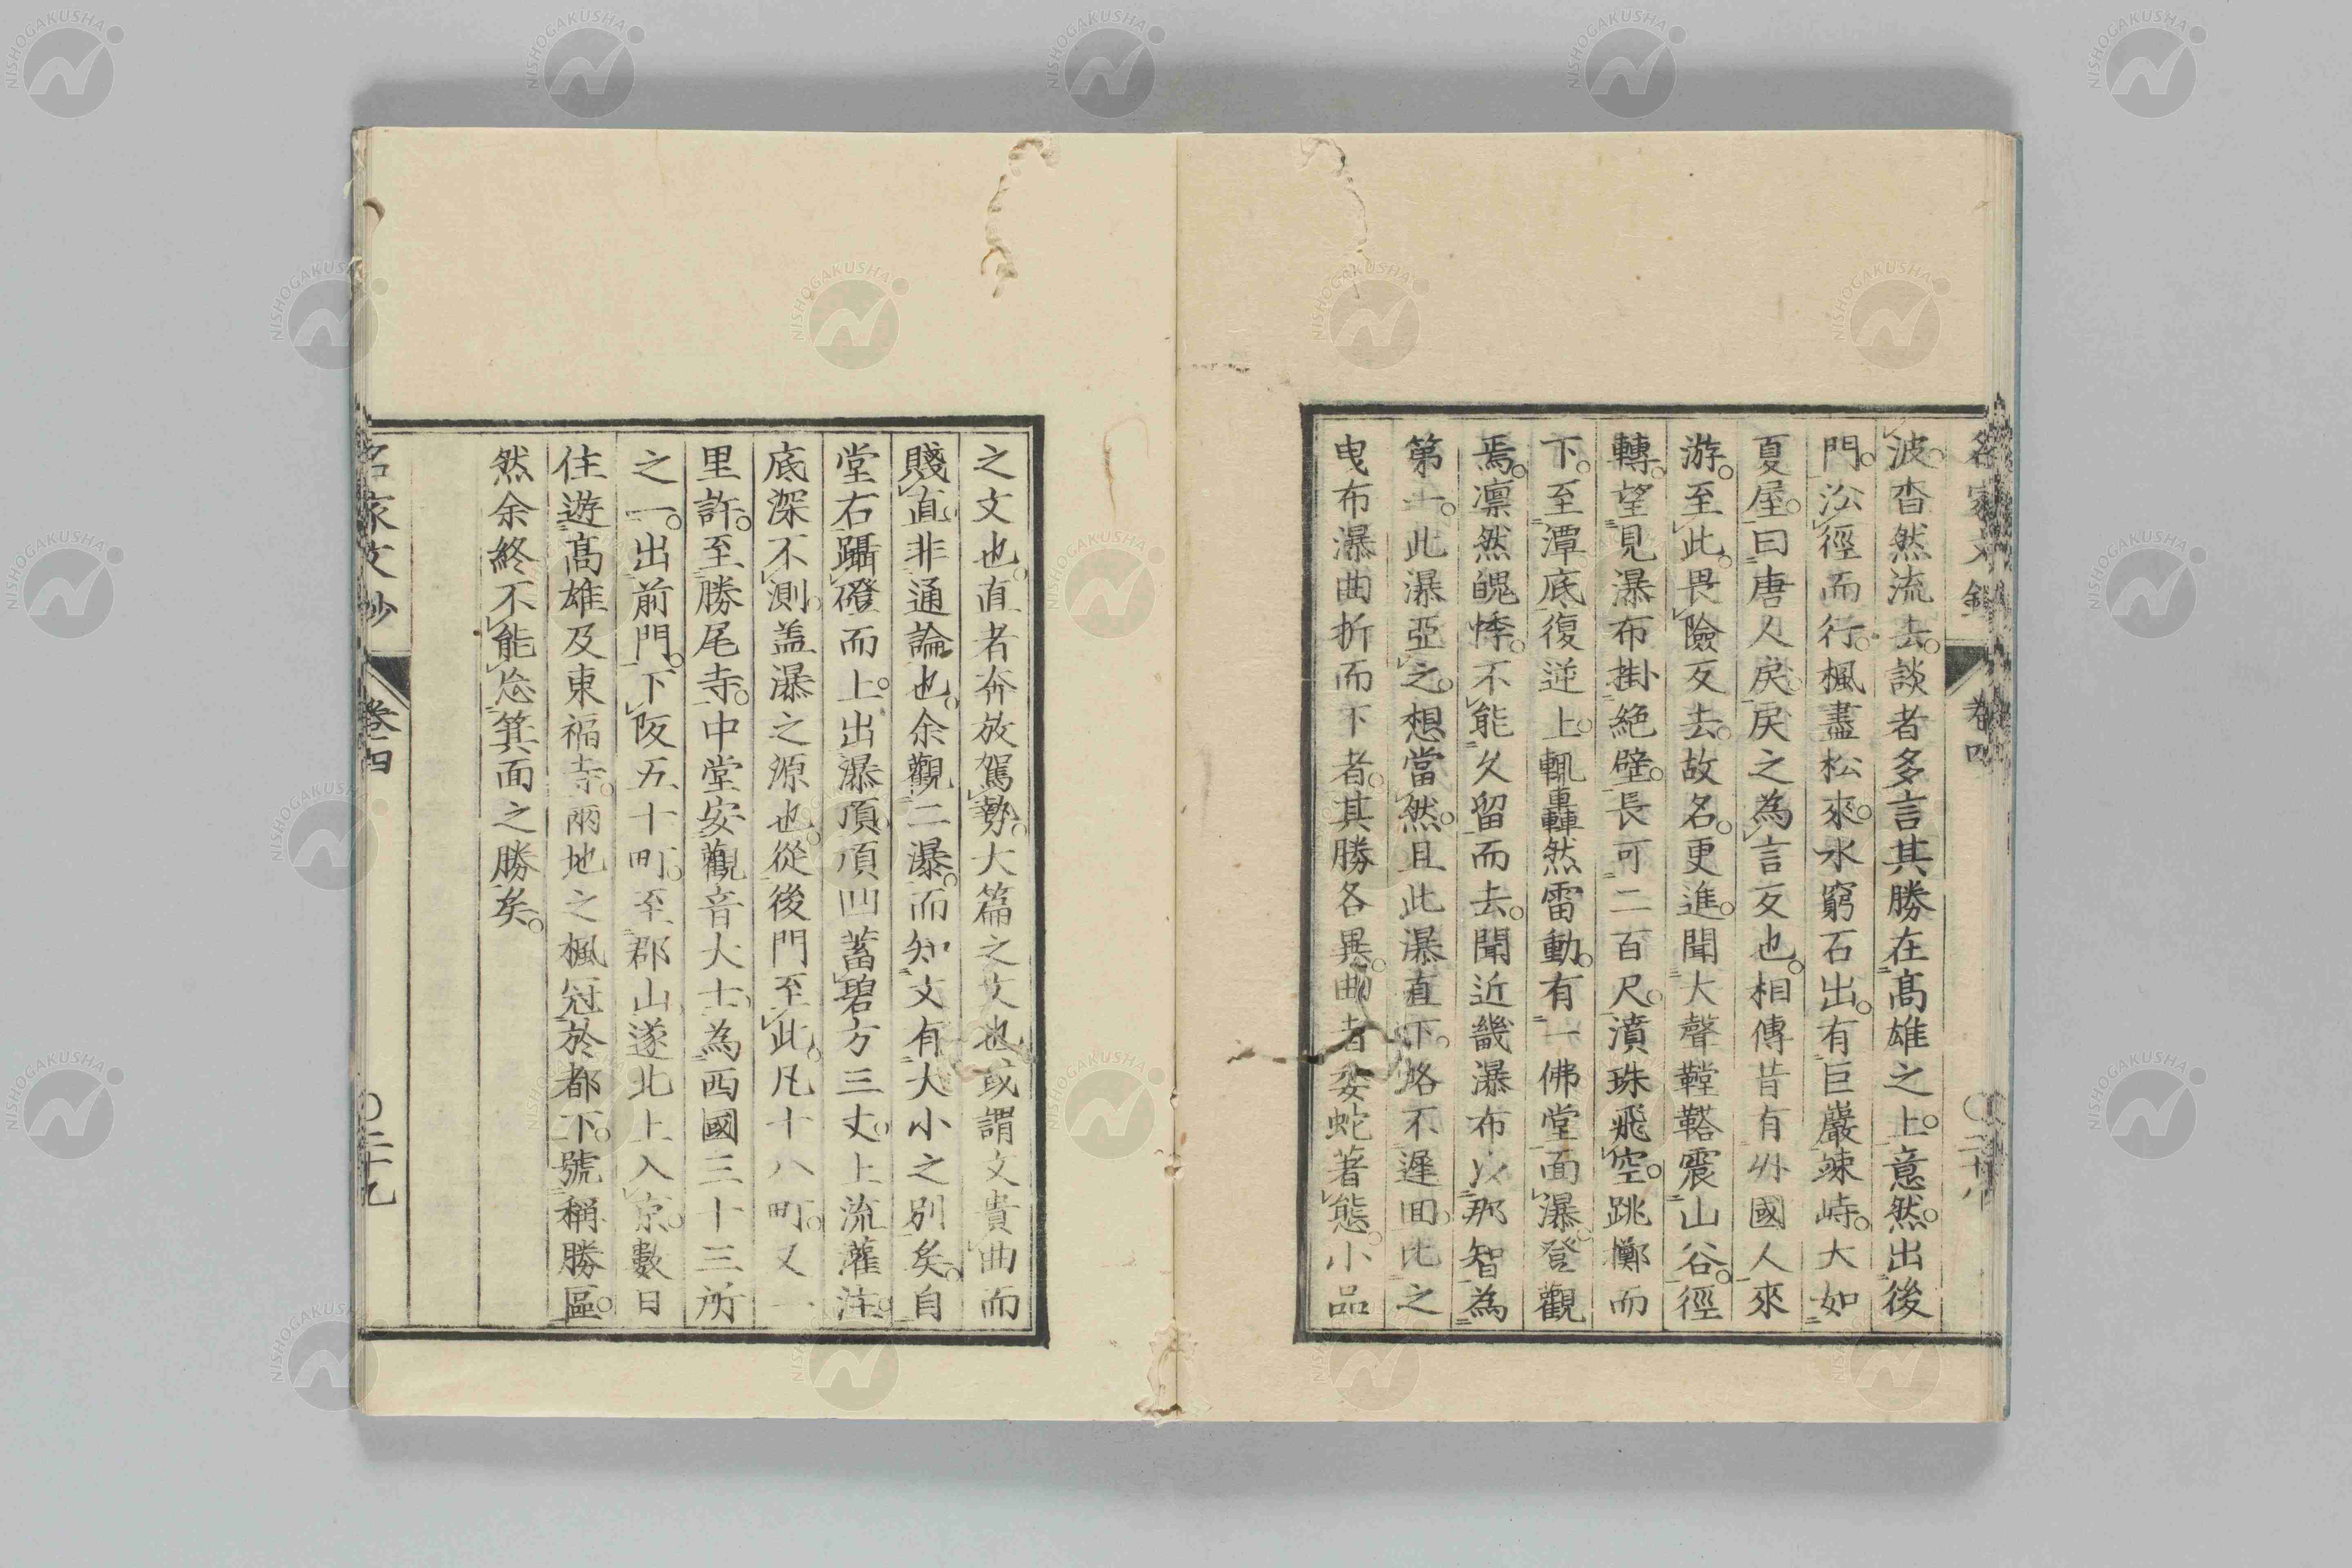 名家文鈔 卷四 ○二十八
波。杳然流去。談者多言其勝在高雄之上。意然。出後
門。㳂徑而行。楓盡松來。水窮石出。有巨巖竦峙。大如
夏屋。曰唐人戾。戾之為言反也。相傳昔有外國人來
游。至此。畏險反去。故名。更進。聞大聲鞺鞳震山谷。徑
轉。望見瀑布掛絕壁。長可二百尺。濆珠飛空。跳擲而
下。至潭底復逆上。輒轟然雷動。有一佛堂面瀑。登觀
焉。凛然魄悸。不能久留而去。聞近畿瀑布以那智為
第一。此瀑亞之。想當然。然且此瀑直下。略不遲回。比之
曳布瀑曲折而下者。其勝各異。曲者委蛇著態。小品
之文也。直者奔放駕勢。大篇之文也。或謂文貴曲而
賤直。非通論也。余觀二瀑。而知文有大小之別矣。自
堂右躡磴而上。出瀑頂。頂凹蓄碧方三丈。上流灌注。
底深不測。盖瀑之源也。從後門至此。凡十八町。又一
里許。至勝尾寺。中堂安觀音大士。為西國三十三所
之一。出前門。下阪五十町。至郡山。遂北上入京。數日
徃遊高雄及東福寺。兩地之楓冠於都下。號稱勝區。
然余終不能忘箕面之勝矣。
名家文鈔 卷四 ○二十九
NISHOGAKUSHA